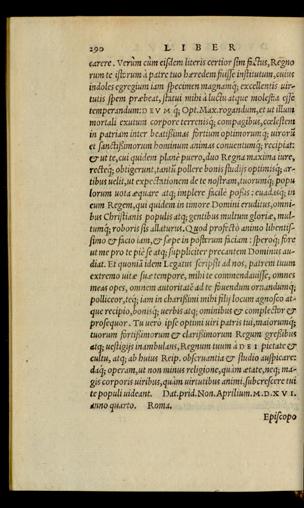 290 LIBER
carere. Verùm cùm eisdem literis certior sim factus, Regno
rum te istorum à patre tuo hæredem fuisse institutum, cuius
indoles egregium iam specimen magnamq; excellentis uir-
tutis spem præbeat, statui mihi à luctu atque molestia esse
temperandum: DEVMq; Opt. Max. rogandum, et ut illum
mortali exutum corpore terrenisq; compagibus, cœlestem
in patriam inter beatissimas fortium optimorumq; uirorũ
et sanctissimorum hominum animas conuentumq; recipiat:
& ut te, cui quidem planè puero, duo Regna maxima iure,
recteq; obtigerunt, tantũ pollere bonis studijs optimisq; ar-
tibus uelit, ut expectationem de te nostram, tuorumq; popu
lorum uota æquare atq; implere facile possis: euadasq; in
eum Regem, qui quidem in timore Domini eruditus, omni-
bus Christianis populis atq; gentibus multum gloriæ, mul-
tumq; roboris sis allaturus. Quod profectò animo libentis-
simo & facio iam, & sæpe in posterum faciam: speroq; fore
ut me pro te piè sæ atq; suppliciter precantem Dominus au-
diat. Et quoniã idem Legatus scripsit ad nos, patrem tuum
extremo uitæ suæ tempore, mihi te commendauisse, omnes
meas opes, omnem autoritatẽ ad te fouendum ornandumq;
polliceor, teq; iam in charissimi mihi filij locum agnosco at-
que recipio, bonisq; uerbis atq; ominibus & complector &
prosequor. Tu uerò ipse optimi uiri patris tui, maiorumq;
tuorum fortissimorum & clarissimorum Regum gressibus
atq; uestigijs inambulans, Regnum tuum à DEI pietate &
cultu, atq; ab huius Reip. obseruantia & studio auspicare:
daq; operam, ut non minus religione, quàm ætate, neq; ma-
gis corporis uiribus, quàm uirtutibus animi, subcrescere tui
te populi uideant. Dat. prid. Non. Aprilium. M.D.XVI.
anno quarto. Roma.
Episcopo